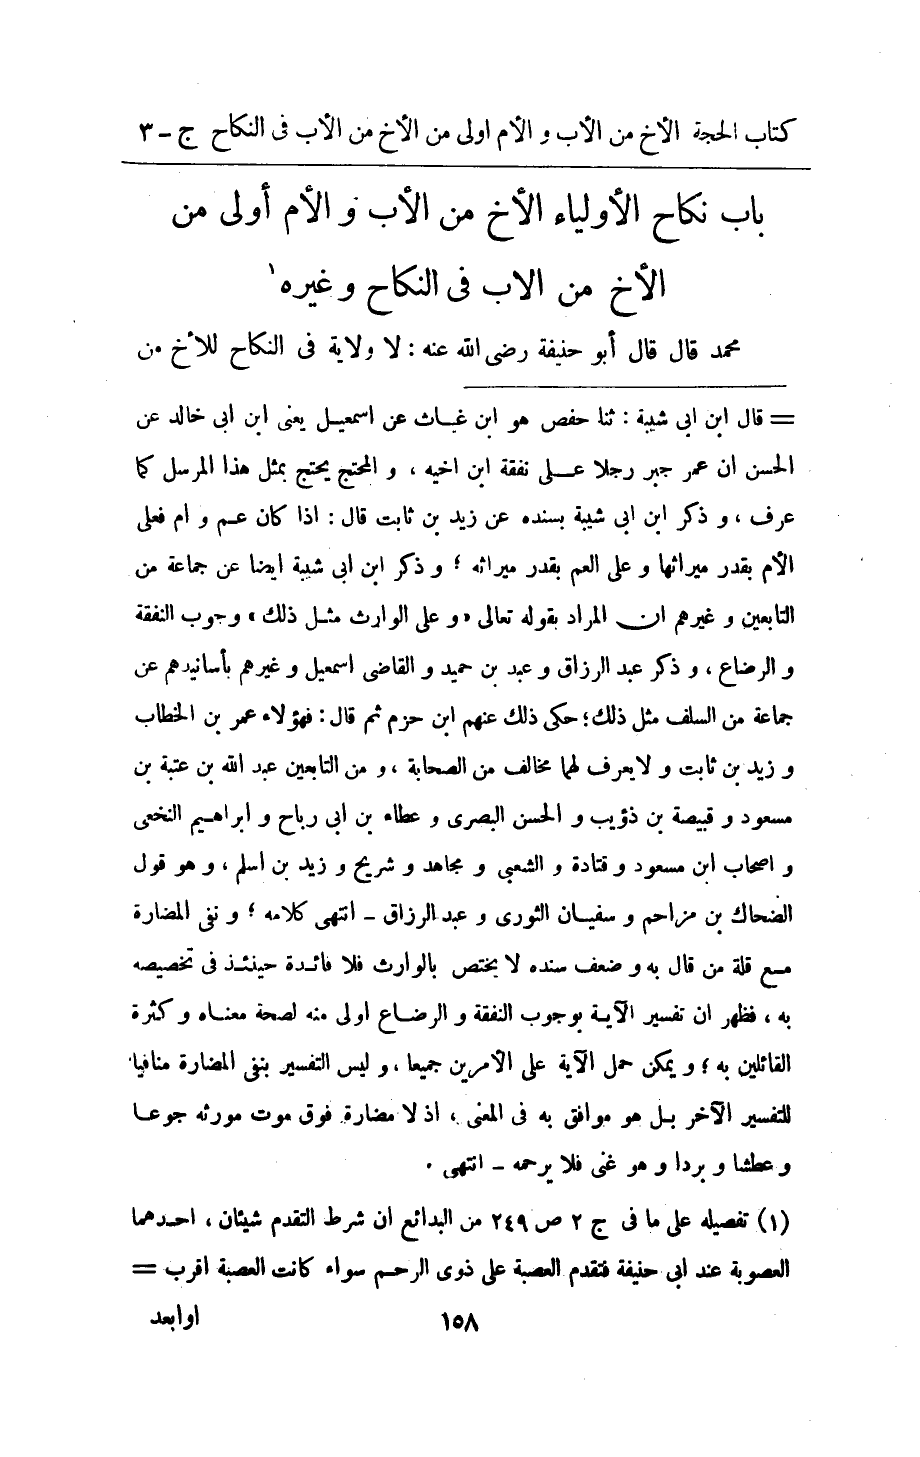 كتاب الحجة الأخ من الأب و الأم اولى من الأخ من الأب فى النكاح ج - ٣
باب نكاح الأولياء الأخ من الأب و الأم أولى من
الأخ من الاب فى النكاح و غيره ١
محمد قال قال أبو حنيفة رضى الله عنه : لا ولاية فى النكاح للأخ من
= قال ابن ابى شيبة : ثنا حفص هو ابن غياث عن اسمعيل يعنى ابن ابى خالد عن
الحسن ان عمر جبر رجلا على نفقة ابن اخيه ، و المحتج يحتج بمثل هذا المرسل كما
عرف ، و ذكر ابن ابى شيبة بسنده عن زيد بن ثابت قال : اذا كان عم و ام فعلى
الأم بقدر ميراثها و على العم بقدر ميراثه ؛ و ذكر ابن ابى شيبة ايضا عن جماعة من
التابعين و غيرهم ان المراد بقوله تعالى «و على الوارث مثل ذلك» وجوب النفقة
و الرضاع ، و ذكر عبد الرزاق و عبد بن حميد و القاضى اسمعيل و غيرهم بأسانيدهم عن
جماعة من السلف مثل ذلك ؛ حكى ذلك عنهم ابن حزم ثم قال : فهؤلاء عمر بن الخطاب
و زيد بن ثابت و لايعرف لهما مخالف من الصحابة ، و من التابعين عبد الله بن عتبة بن
مسعود و قبيصة بن ذؤيب و الحسن البصرى و عطاء بن ابى رباح و ابراهيم النخعى
و اصحاب ابن مسعود و قتادة و الشعبي و مجاهد و شريح و زيد بن أسلم ، و هو قول
الضحاك بن مزاحم و سفيان الثورى و عبد الرزاق - انتهى كلامه ؛ و نفى المضارة
مع قلة من قال به و ضعف سنده لا يختص بالوارث فلا فائدة حينئذ فى تخصيصه
به ، فظهر ان تفسير الآية بوجوب النفقة و الرضاع اولى منه لصحة معناه و كثرة
القائلين به ؛ و يمكن حمل الآية على الأمرين جميعا ، و ليس التفسير بنفى المضارة منافيا
للتفسير الآخر بل هو موافق به فى المعنى ، اذ لا مضارة فوق موت مورثه جوعا
و عطشا و بردا و هو غنى فلا يرحمه - انتهى .
(١) تفصيله على ما فى ج ٢ ص ٢٤٩ من البدائع ان شرط التقدم شيئان ، احدهما
العصوبة عند ابى حنيفة فتقدم العصبة على ذوى الرحم سواء كانت العصبة اقرب =
١٥٨
اوابعد